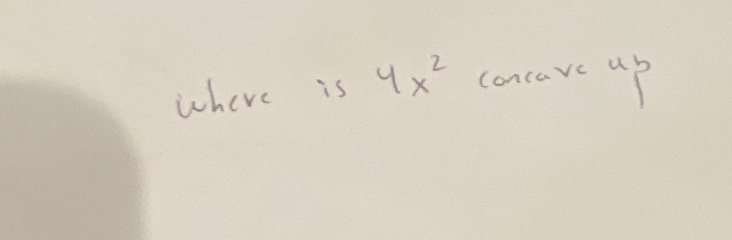 where is 4x² concave up